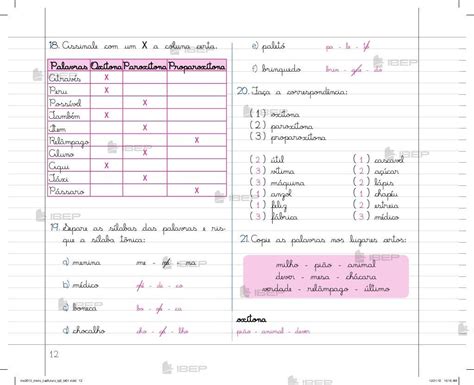 18. Assinale com um X a coluna certa.
Palavras Oxítona Paroxítona Proparoxítona
Através X
Peru X
Possível X
Também X
Item X
Relâmpago X
Aluno X
Aqui X
Táxi X
Pássaro X
19. Separe as sílabas das palavras e ris-
que a sílaba tônica:
a) menina me - ni - na
b) médico mé - di - co
c) boneca bo - ne - ca
d) chocalho cho - ca - lho
12
e) paletó pa - le - tó
f) brinquedo brin - que - do
20. Faça a correspondência:
( 1 ) oxítona
( 2 ) paroxítona
( 3 ) proparoxítona
( 2 ) útil ( 1 ) cascavel
( 3 ) vítima ( 2 ) açúcar
( 3 ) máquina ( 2 ) lápis
( 1 ) anzol ( 1 ) chapéu
( 1 ) feliz ( 2 ) estreia
( 3 ) fábrica ( 3 ) médico
21. Copie as palavras nos lugares certos:
milho - pião - animal
dever - mesa - chácara
verdade - relâmpago - último
oxítona
pião - animal - dever
IBEP